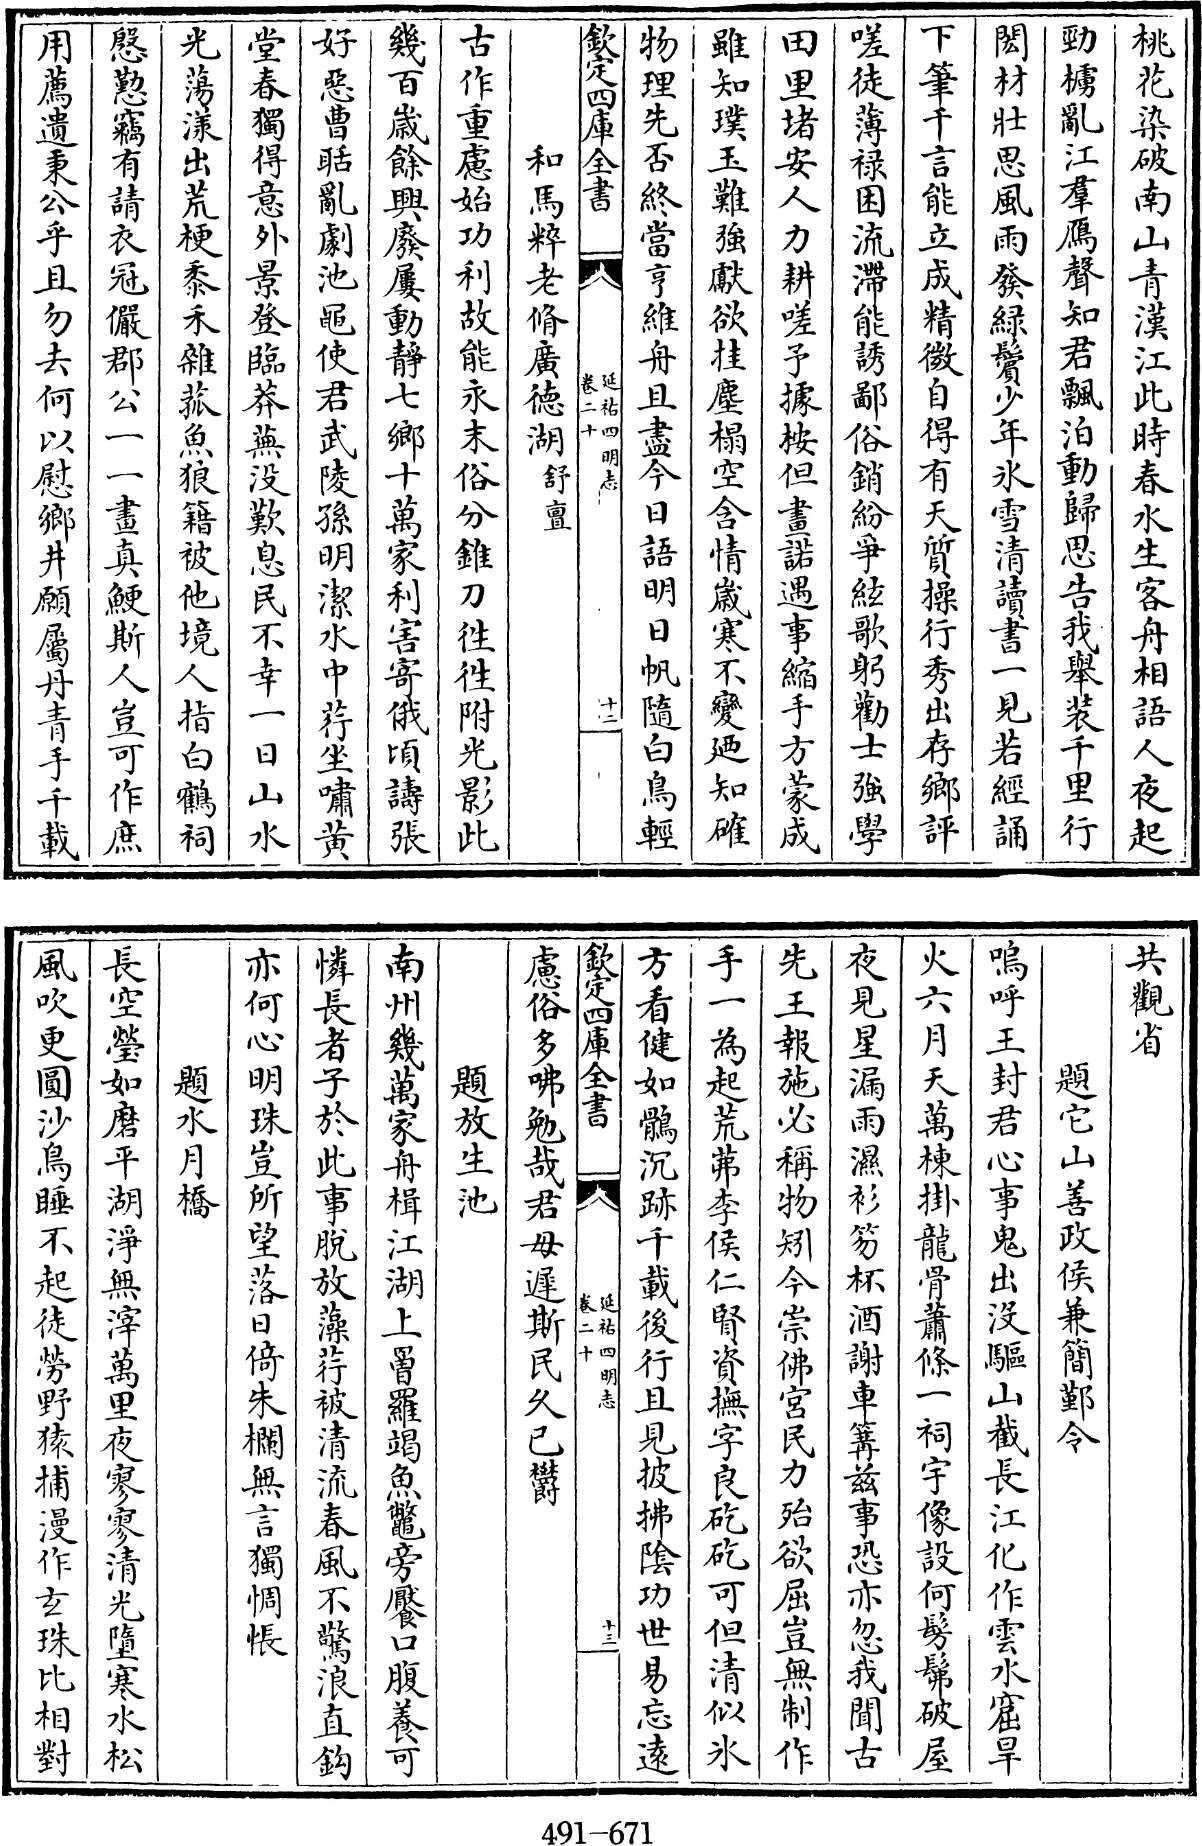 桃花染破南山青漢江此時春水生客舟相語人夜起
勁櫓亂江羣鴈聲知君飄泊動歸思告我舉装千里行
閎材壯思風雨發緑鬢少年氷雪清讀書一見若經誦
下筆千言能立成精微自得有天質操行秀出存鄉評
嗟徒薄禄困流滯能誘鄙俗銷紛爭絃歌躬勸士強學
田里堵安人力耕嗟予據桉但畫諾遇事縮手方蒙成
雖知璞玉難強獻欲挂塵榻空含情嵗寒不變廼知確
物理先否終當亨維舟且盡今日語明日帆隨白鳥輕
欽定四庫全書
延祐四明志
卷二十
十二
和馬粹老脩廣德湖 舒亶
古作重慮始功利故能永末俗分錐刀徃徃附光影此
幾百嵗餘興廢屢動靜七鄉十萬家利害寄俄頃譸張
好惡曹聒亂劇池黽使君武陵孫明潔水中荇坐嘯黄
堂春獨得意外景登臨莽蕪没歎息民不幸一日山水
光蕩漾出荒梗黍禾雜菰魚狼籍被他境人指白鶴祠
慇懃竊有請衣冠儼郡公一一畫真鯁斯人豈可作庶
用薦遺秉公乎且勿去何以慰鄉井願屬丹青手千載
共觀省
題它山善政侯兼簡鄞令
嗚呼王封君心事鬼出没驅山截長江化作雲水窟旱
火六月天萬棟掛龍骨蕭條一祠宇像設何髣髴破屋
夜見星漏雨濕衫笏杯酒謝車篝兹事恐亦忽我聞古
先王報施必稱物矧今崇佛宮民力殆欲屈豈無制作
手一為起荒茀李侯仁賢資撫字良矻矻可但清似氷
方看健如鶻沉跡千載後行且見披拂陰功世易忘逺
欽定四庫全書
延祐四明志
卷二十
十三
慮俗多咈勉哉君毋遲斯民久已欝
題放生池
南州幾萬家舟楫江湖上罾羅竭魚鼈旁饜口腹養可
憐長者子於此事脱放藻荇被清流春風不驚浪直鈎
亦何心明珠豈所望落日倚朱欄無言獨惆悵
題水月橋
長空瑩如磨平湖淨無滓萬里夜寥寥清光墮寒水松
風吹更圓沙鳥睡不起徒勞野猿捕漫作玄珠比相對
491-671